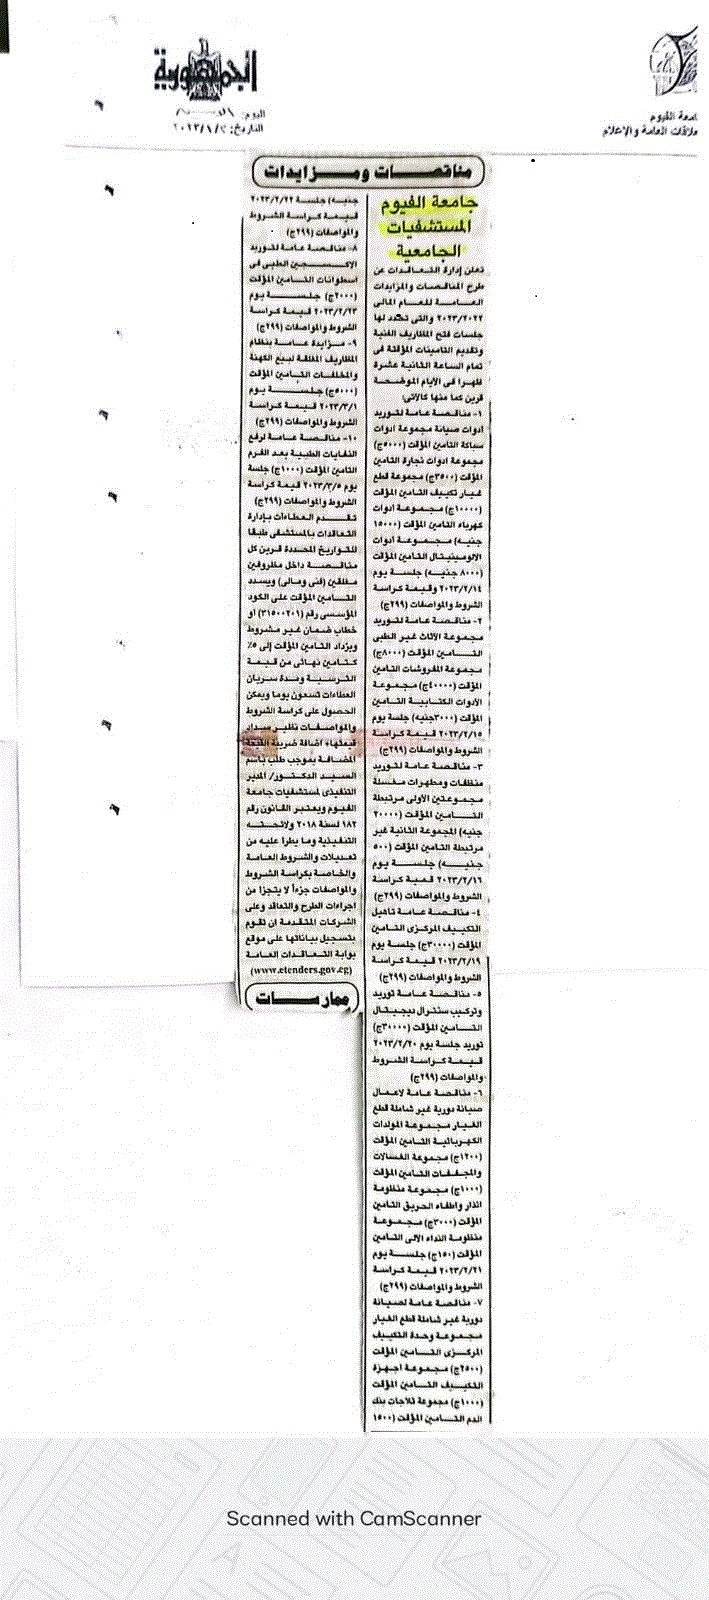 الجمهورية
اليوم:
التاريخ: ٢٠٢٣/١/
جامعة الفيوم
العلاقات العامة والإعلام
مناقصات ومزايدات
جامعة الفيوم
المستشفيات
الجامعية
تعلن إدارة التعاقدات عن
طرح المناقصات والمزايدات
العامة للعام المالى
٢٠٢٣/٢٠٢٢ والتى تحدد لها
جلسات فتح المظاريف الفنية
وتقديم التامينات المؤقتة فى
تمام الساعة الثانية عشرة
ظهرا فى الأيام الموضحة
قرين كما منها كالآتى:
١- مناقصة عامة لتوريد
أدوات صيانة مجموعة أدوات
سباكة التامين المؤقت (٥٠٠٠ج)
مجموعة أدوات نجارة التامين
المؤقت (٣٥٠٠ج) مجموعة قطع
غيار تكييف التامين المؤقت
(١٠٠٠٠ج) مجموعة أدوات
كهرباء التامين المؤقت (١٥٠٠٠
جنيه) مجموعة أدوات
الالومينيتال التامين المؤقت
(٨٠٠٠ جنيه) جلسة يوم
٢٠٢٣/٢/١٤ وقيمة كراسة
الشروط والمواصفات (٢٩٩ج)
٢- مناقصة عامة لتوريد
مجموعة الأثاث غير الطبى
التامين المؤقت (٨٠٠٠ج)
مجموعة المفروشات التامين
المؤقت (٤٠٠٠٠ج) مجموعة
الأدوات الكتابية التامين
المؤقت (٣٠٠٠جنيه) جلسة يوم
٢٠٢٣/٢/١٥ قيمة كراسة
الشروط والمواصفات (٢٩٩ج)
٣- مناقصة عامة لتوريد
منظفات ومطهرات مغسلة
مجموعتين الأولى مرتبطة
التامين المؤقت (٢٠٠٠٠
جنيه) المجموعة الثانية غير
مرتبطة التامين المؤقت (٥٠٠
جنيه) جلسة يوم
٢٠٢٣/٢/١٦ قمية كراسة
الشروط والمواصفات (٢٩٩ج)
٤- مناقصة عامة تاهيل
التكييف المركزى التامين
المؤقت (٣٠٠٠٠ج) جلسة يوم
٢٠٢٣/٢/١٩ قيمة كراسة
الشروط والمواصفات (٢٩٩ج)
٥- مناقصة عامة توريد
وتركيب سنترال ديجيتال
التامين المؤقت (٣٠٠٠٠ج)
توريد جلسة يوم ٢٠٢٣/٢/٢٠
قيمة كراسة الشروط
والمواصفات (٢٩٩ج)
٦- مناقصة عامة لاعمال
صيانة دورية غير شاملة قطع
الغيار مجموعة المولدات
الكهربائية التامين المؤقت
(١٢٠٠ج) مجموعة الغسالات
والمجففات التامين المؤقت
(١٠٠٠ج) مجموعة منظومة
انذار واطفاء الحريق التامين
المؤقت (٣٠٠٠ج) مجموعة
منظومة النداء الآلى التامين
المؤقت (١٥٠ج) جلسة يوم
٢٠٢٣/٢/٢١ قيمة كراسة
الشروط والمواصفات (٢٩٩ج)
٧- مناقصة عامة لصيانة
دورية غير شاملة قطع الغيار
مجموعة وحدة التكييف
المركزى التامين المؤقت
(٢٥٠٠ج) مجموعة أجهزة
التكييف التامين المؤقت
(١٠٠٠ج) مجموعة ثلاجات بنك
الدم التامين المؤقت (١٥٠٠
جنيه) جلسة ٢٠٢٣/٢/٢٢
قيمة كراسة الشروط
والمواصفات (٢٩٩ج)
٨- مناقصة عامة لتوريد
الاكسجين الطبى فى
اسطوانات التامين المؤقت
(٢٠٠٠ج) جلسة يوم
٢٠٢٣/٢/٢٣ قيمة كراسة
الشروط والمواصفات (٢٩٩ج)
٩- مزايدة عامة بنظام
المظاريف المغلقة لبيع الكهنة
والمخلفات التامين المؤقت
(٥٠٠٠ج) جلسة يوم
٢٠٢٣/٣/١ قيمة كراسة
الشروط والمواصفات (٢٩٩ج)
١٠- مناقصة عامة لرفع
النفايات الطبية بعد الفرم
التامين المؤقت (١٠٠٠ج) جلسة
يوم ٢٠٢٣/٣/٥ قيمة كراسة
الشروط والمواصفات (٢٩٩ج)
تقدم العطاءات بإدارة
التعاقدات بالمستشفى طبقا
للتواريخ المحددة قرين كل
مناقصة داخل مظروفين
مغلقين (فنى ومالى) ويسدد
التامين المؤقت على الكود
المؤسسى رقم (٣١٥٠٠٢٠١) أو
خطاب ضمان غير مشروط
ويزداد التامين المؤقت إلى ٥٪
كتامين نهائى من قيمة
الترسية ومدة سريان
العطاءات تسعون يوما ويمكن
الحصول على كراسة الشروط
والمواصفات نظير سداد
قيمتها+ اضافة ضريبة القيمة
المضافة بموجب طلب باسم
السيد الدكتور/ المدير
التنفيذى لمستشفيات جامعة
الفيوم ويعتبر القانون رقم
١٨٢ لسنة ٢٠١٨ ولائحته
التنفيذية وما يطرا عليه من
تعديلات والشروط العامة
والخاصة بكراسة الشروط
والمواصفات جزءاً لا يتجزا من
اجراءات الطرح والتعاقد وعلى
الشركات المتقدمة ان تقوم
بتسجيل بياناتها على موقع
بوابة التعاقدات العامة
(www.etenders.gov.eg)
ممارسات
Scanned with CamScanner